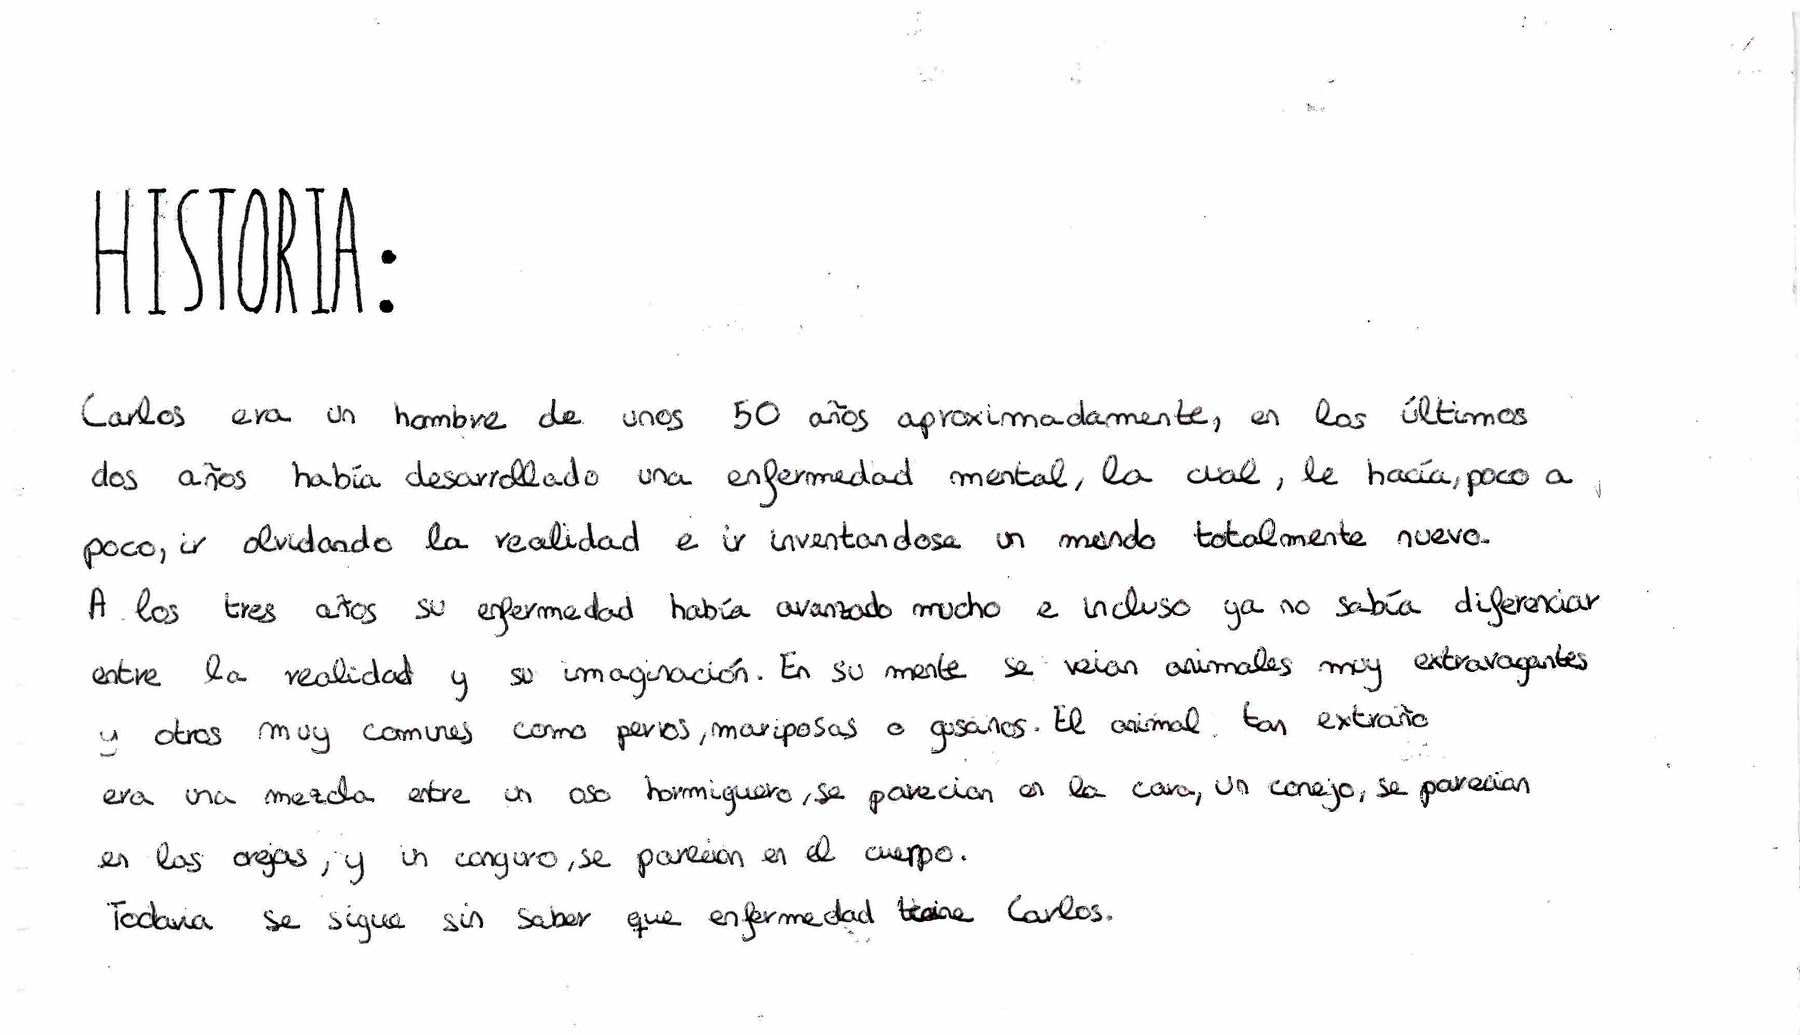 HISTORIA:
Carlos era un hombre de unos 50 años aproximadamente, en los últimos
dos años había desarrollado una enfermedad mental, la cual, le hacía, poco a
poco, ir olvidando la realidad e ir inventandose un mundo totalmente nuevo.
A los tres años su enfermedad había avanzado mucho e incluso ya no sabía diferenciar
entre la realidad y su imaginación. En su mente se veian animales muy extravagantes
y otros muy comunes como perros, mariposas o gusanos. El animal tan extraño
era una mezcla entre un oso hormiguero, se parecian en la cara, un conejo, se parecian
en las orejas, y un canguro, se parecian en el cuerpo.
Todavia se sigue sin saber que enfermedad tiene Carlos.